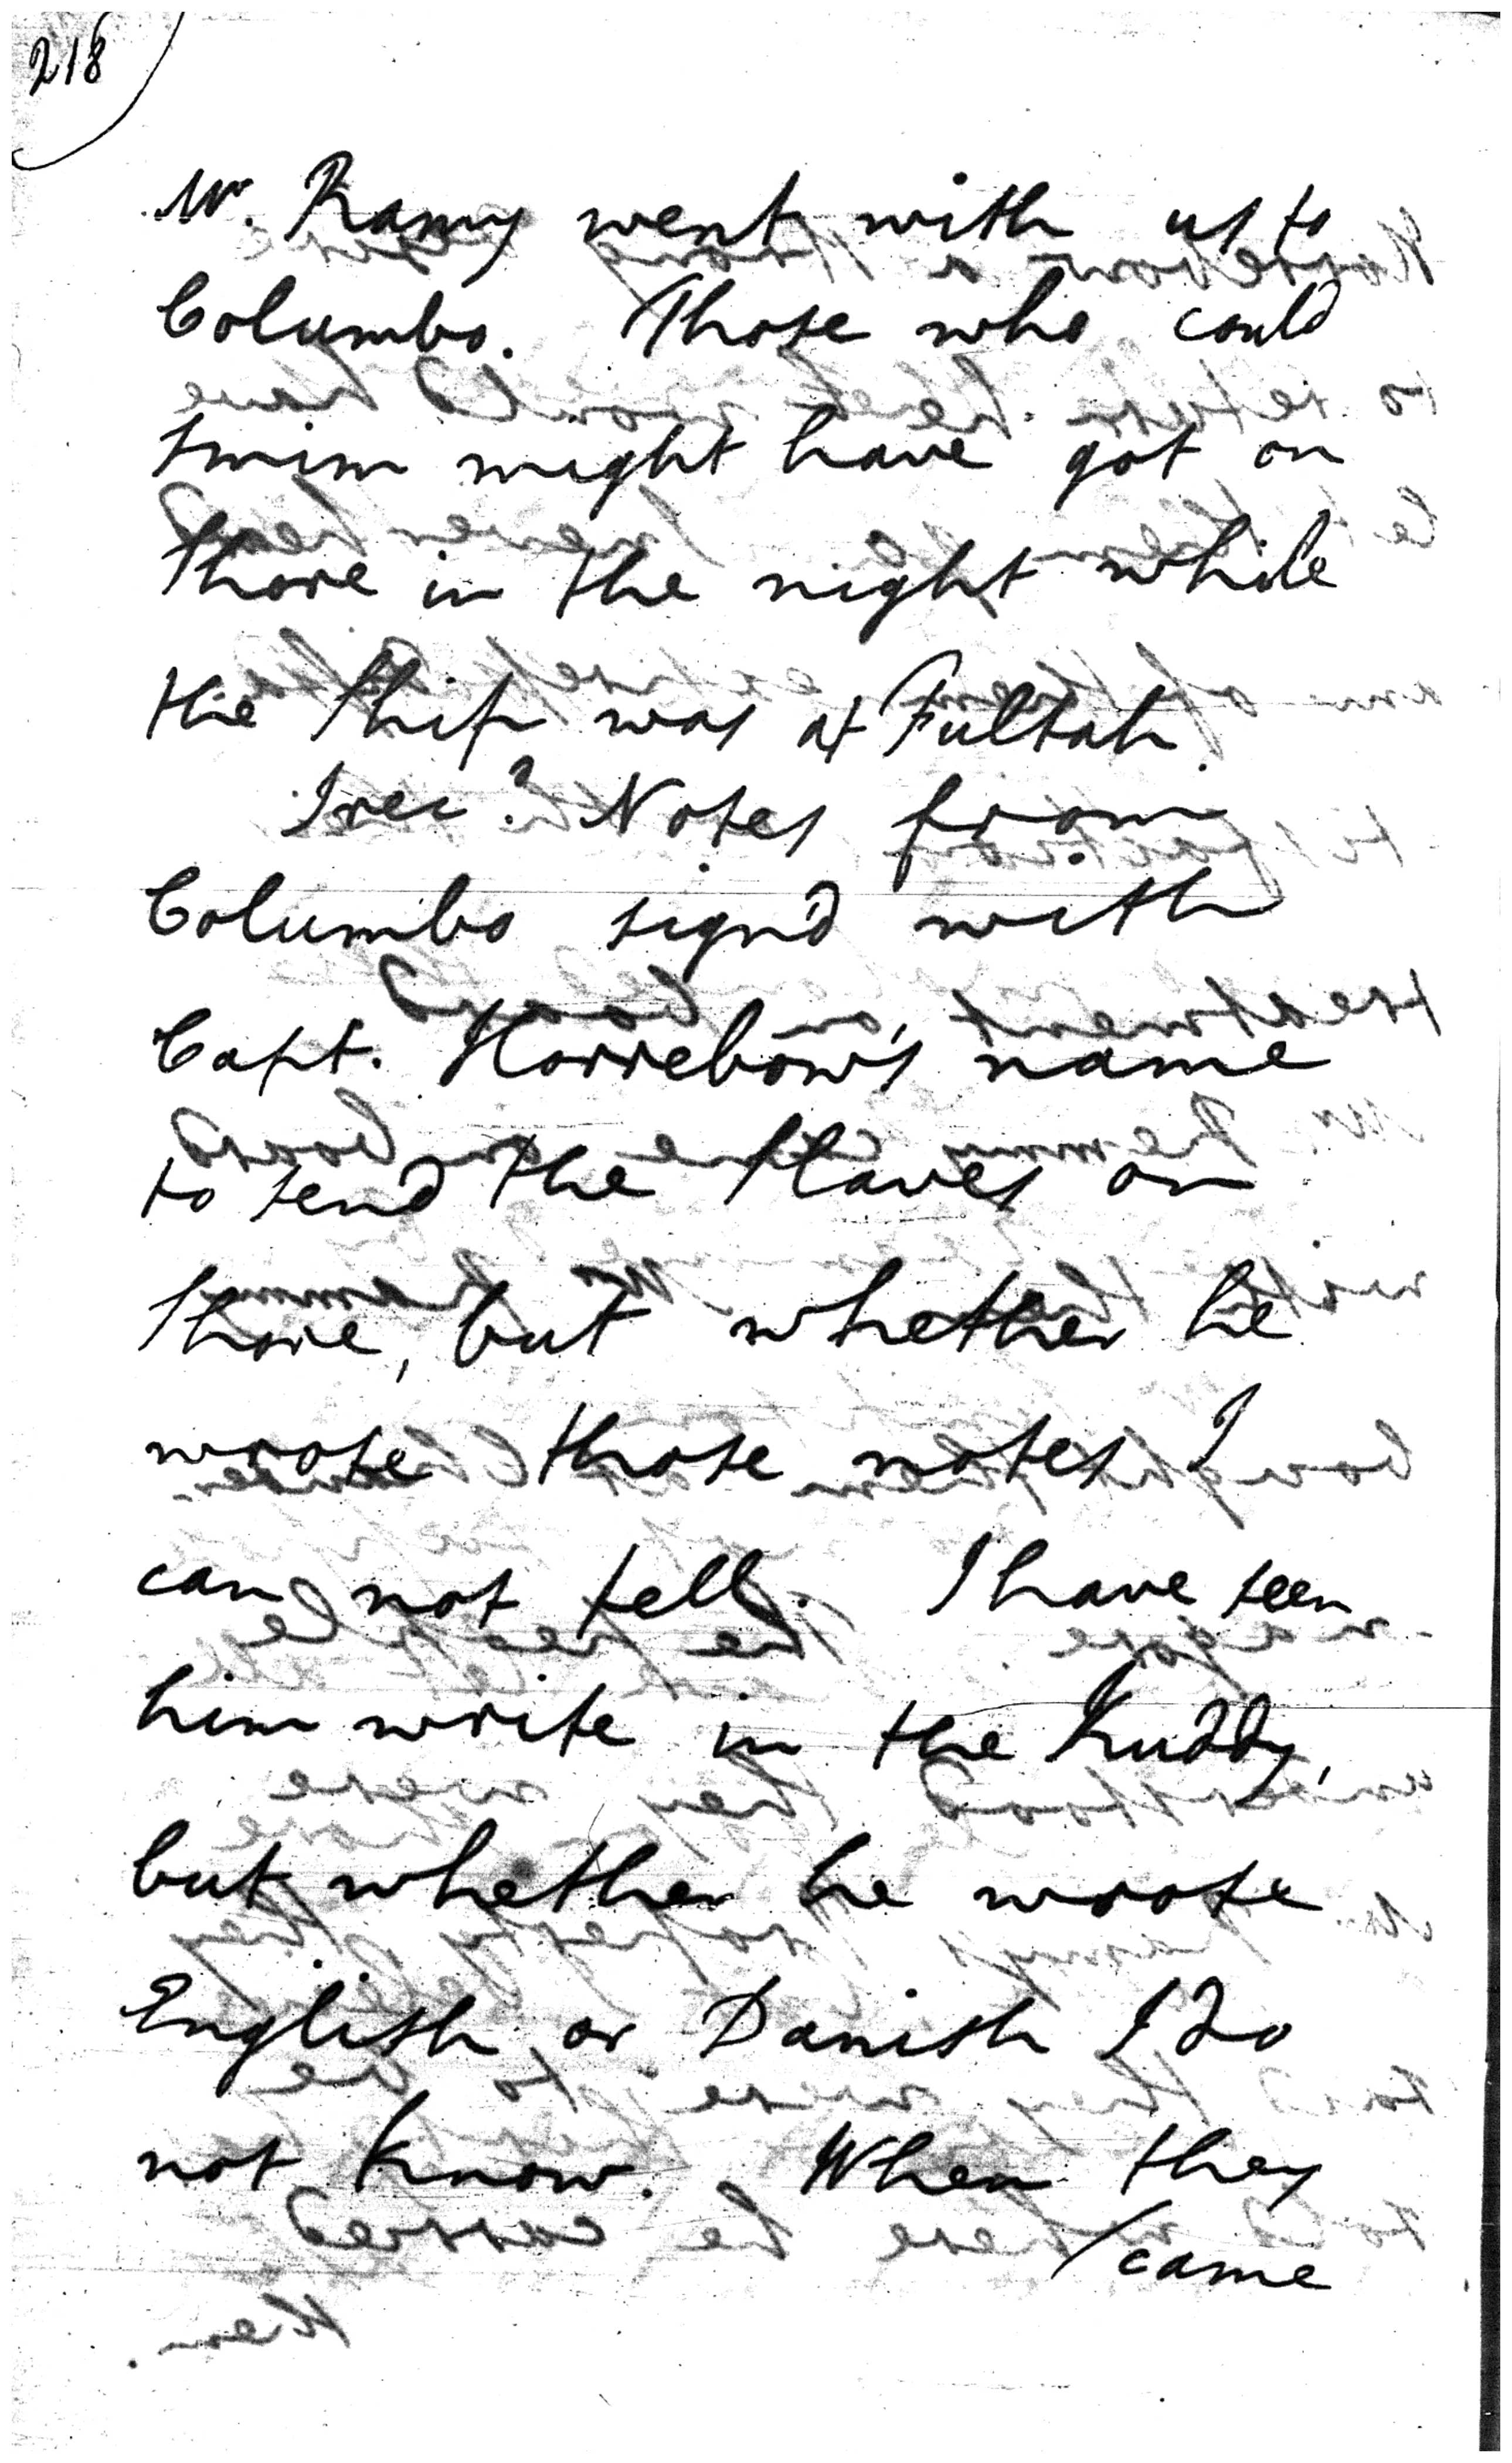 218
Mr. Ramy went with us to
Columbo. Those who could
swim might have got on
Shore in the night while
the Ship was at Fultah.
I recd. Notes from
Columbo sign'd with
Capt. Horrebow's name
to send the Slaves on
Shore, but whether he
wrote those notes I
can not tell. I have seen
him write in the Kuddy,
but whether he wrote
English or Danish I do
not know. When they
/came